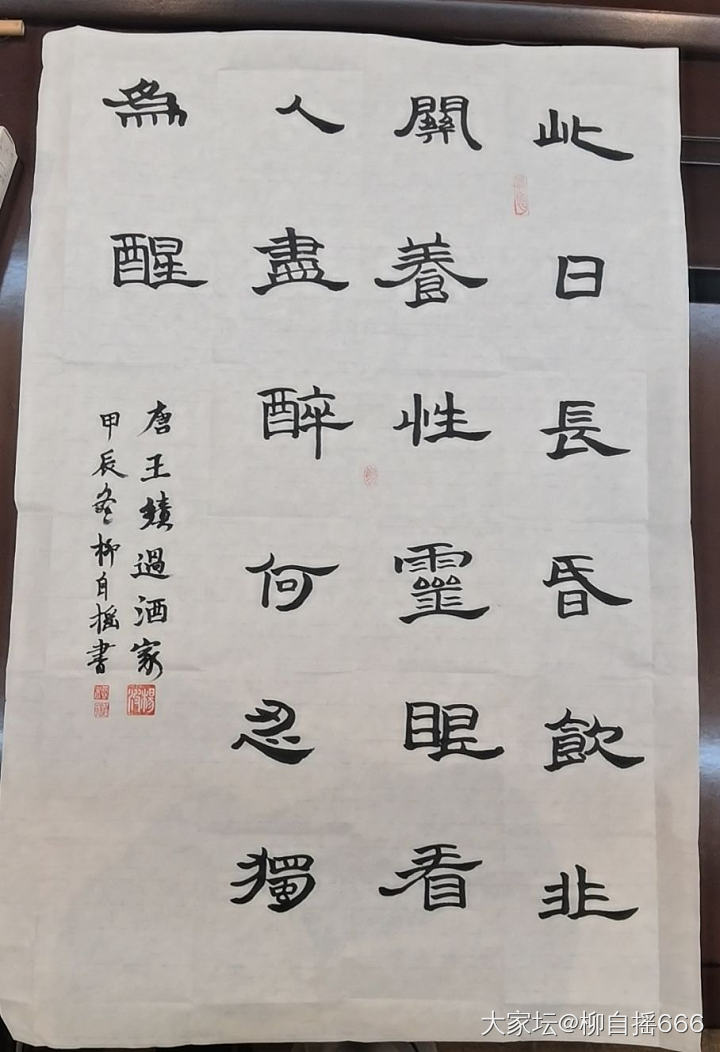 此日長昏飲非
關養性靈眼看
人盡醉何忍獨
為醒
唐王績過酒家
甲辰冬柳自摇書
大家坛@柳自摇666